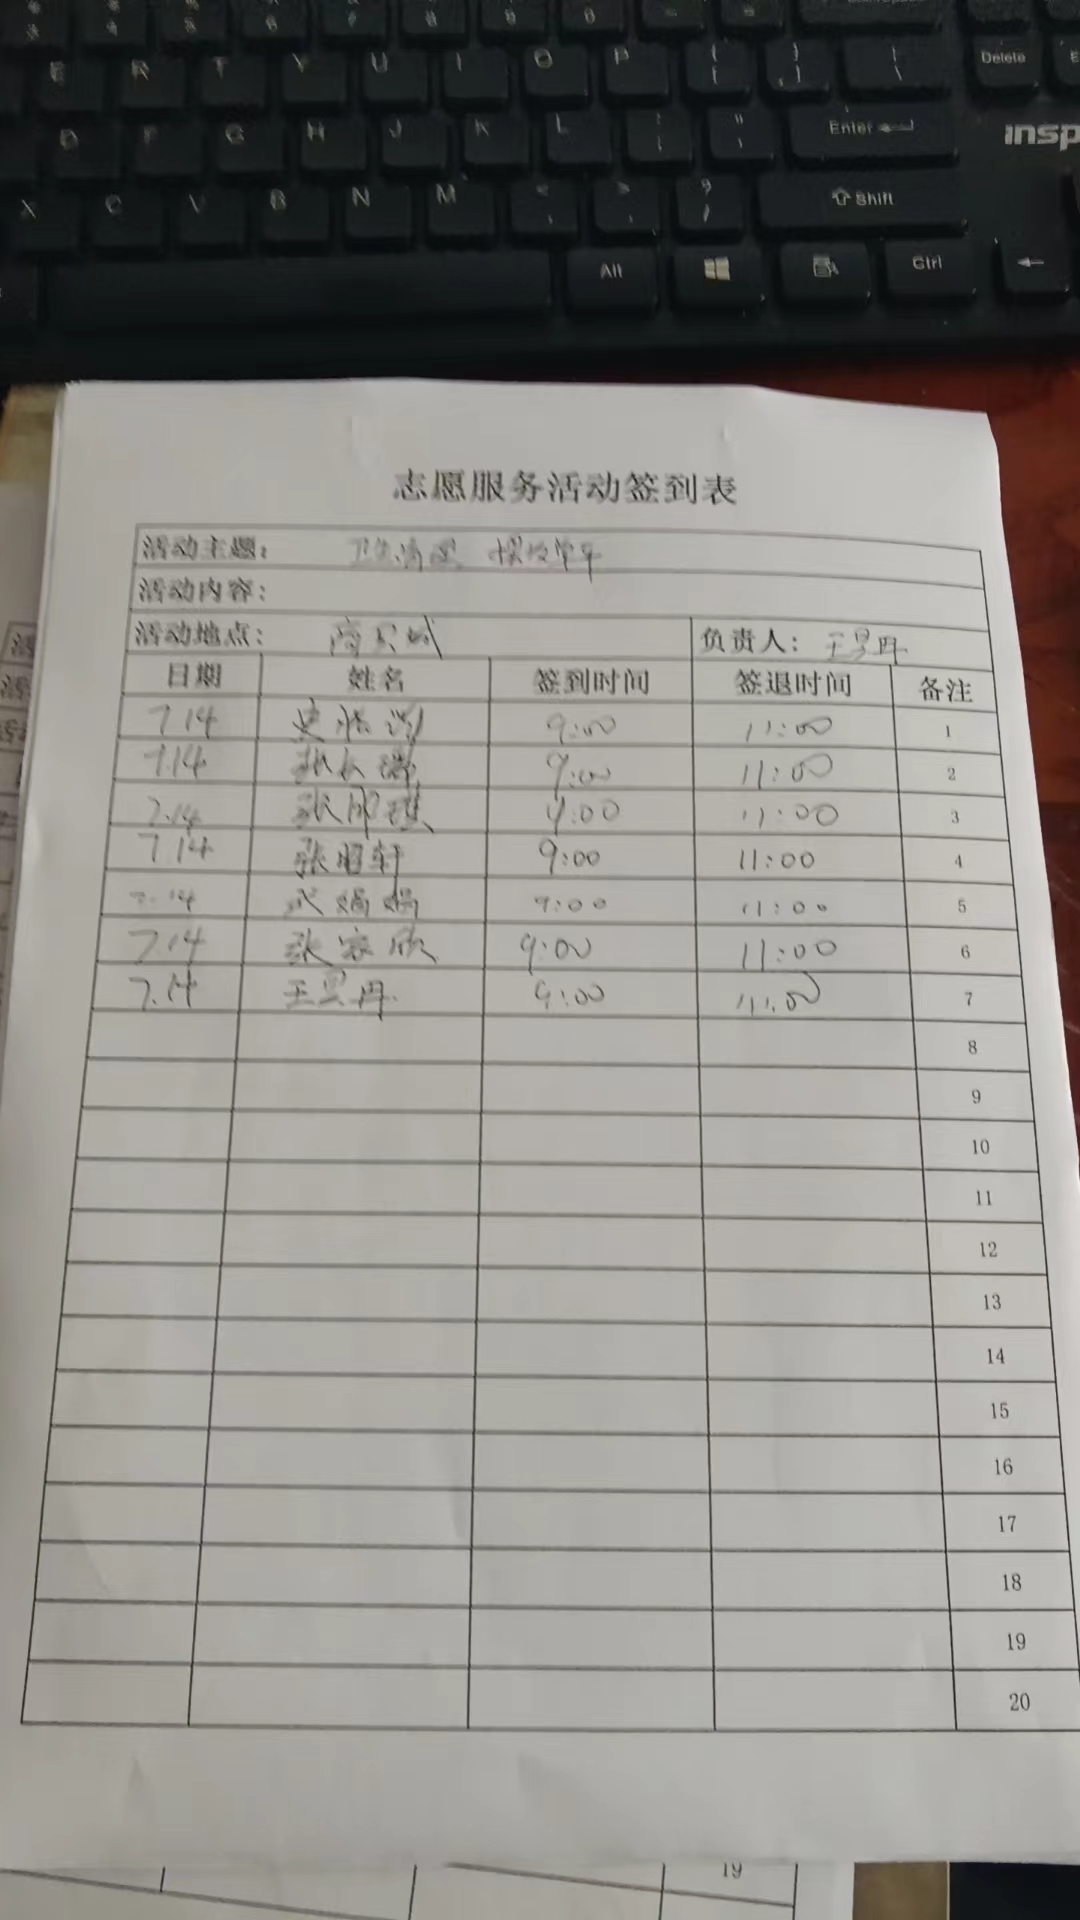 E R T Y U I O P { [ } ] | \ Delete
D F G H J K L : ; " ' Enter
inspur
X C V B N M < , > . ? / Shift
Alt Ctrl
志愿服务活动签到表
活动主题: 卫生清理
活动内容:
活动地点: 负责人: 王昱冉
日期 姓名 签到时间 签退时间 备注
7.14 9:00 11:00 1
7.14 9:00 11:00 2
7.14 9:00 11:00 3
7.14 张昭轩 9:00 11:00 4
7.14 武娟娟 9:00 11:00 5
7.14 张家欣 9:00 11:00 6
7.14 王昱冉 9:00 11:00 7
8
9
10
11
12
13
14
15
16
17
18
19
20
19